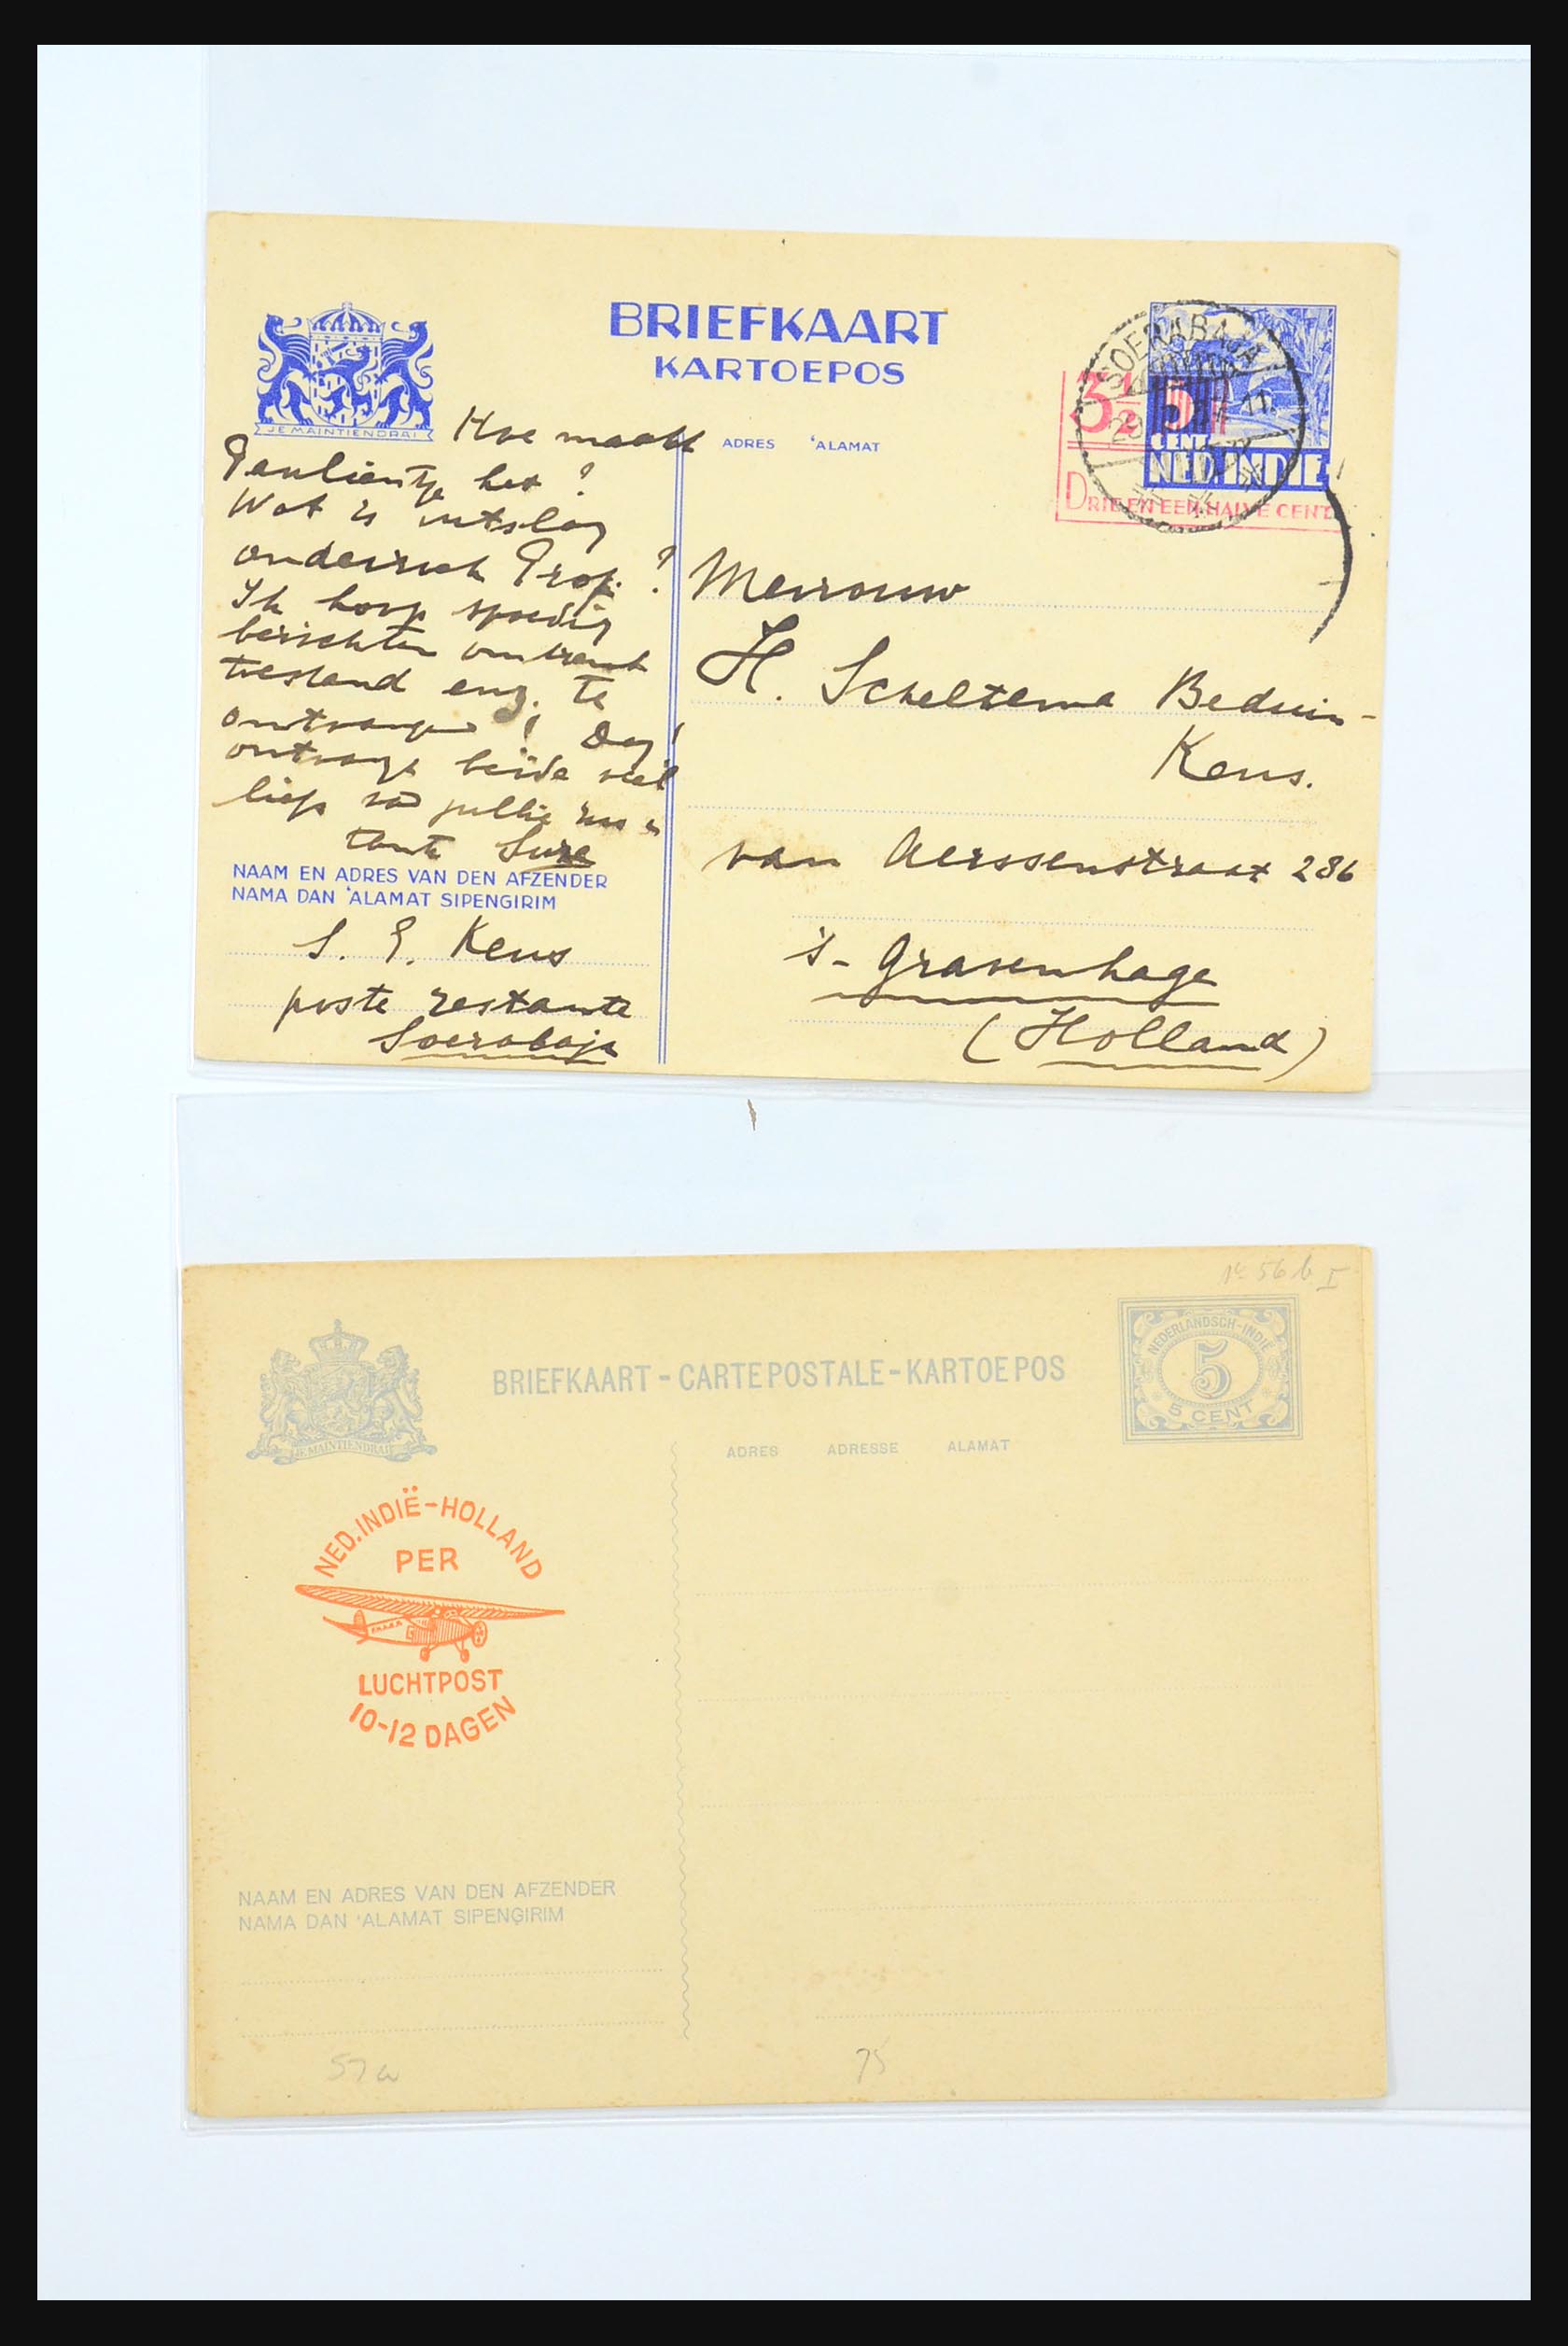 BRIEFKAART
KARTOEPOS
JE MAINTIENDRAI
ADRES 'ALAMAT
SOERABAJA
29 11
3½
5
CENT
NED. INDIE
DRIE EN EEN HALVE CENT
Hoe maakt
Paulientje het ?
Wat is uitslag
onderzoek Prof. ?
Ik hoop spoedig
berichten omtrent
toestand enz. te
ontvangen ! Dag !
ontvang beide veel
liefs van jullie
tante Suze
NAAM EN ADRES VAN DEN AFZENDER
NAMA DAN 'ALAMAT SIPENGIRIM
S. E. Keus
poste restante
Soerabaja
Mevrouw
H. Scheltema Beduin-
Keus.
van Aerssenstraat 286
's-Gravenhage
(Holland)
1c 56 b I
BRIEFKAART-CARTE POSTALE-KARTOEPOS
NEDERLANDSCH-INDIË
5
5 CENT
JE MAINTIENDRAI
ADRES ADRESSE ALAMAT
NED. INDIË-HOLLAND
PER
LUCHTPOST
10-12 DAGEN
NAAM EN ADRES VAN DEN AFZENDER
NAMA DAN 'ALAMAT SIPENGIRIM
57a
75